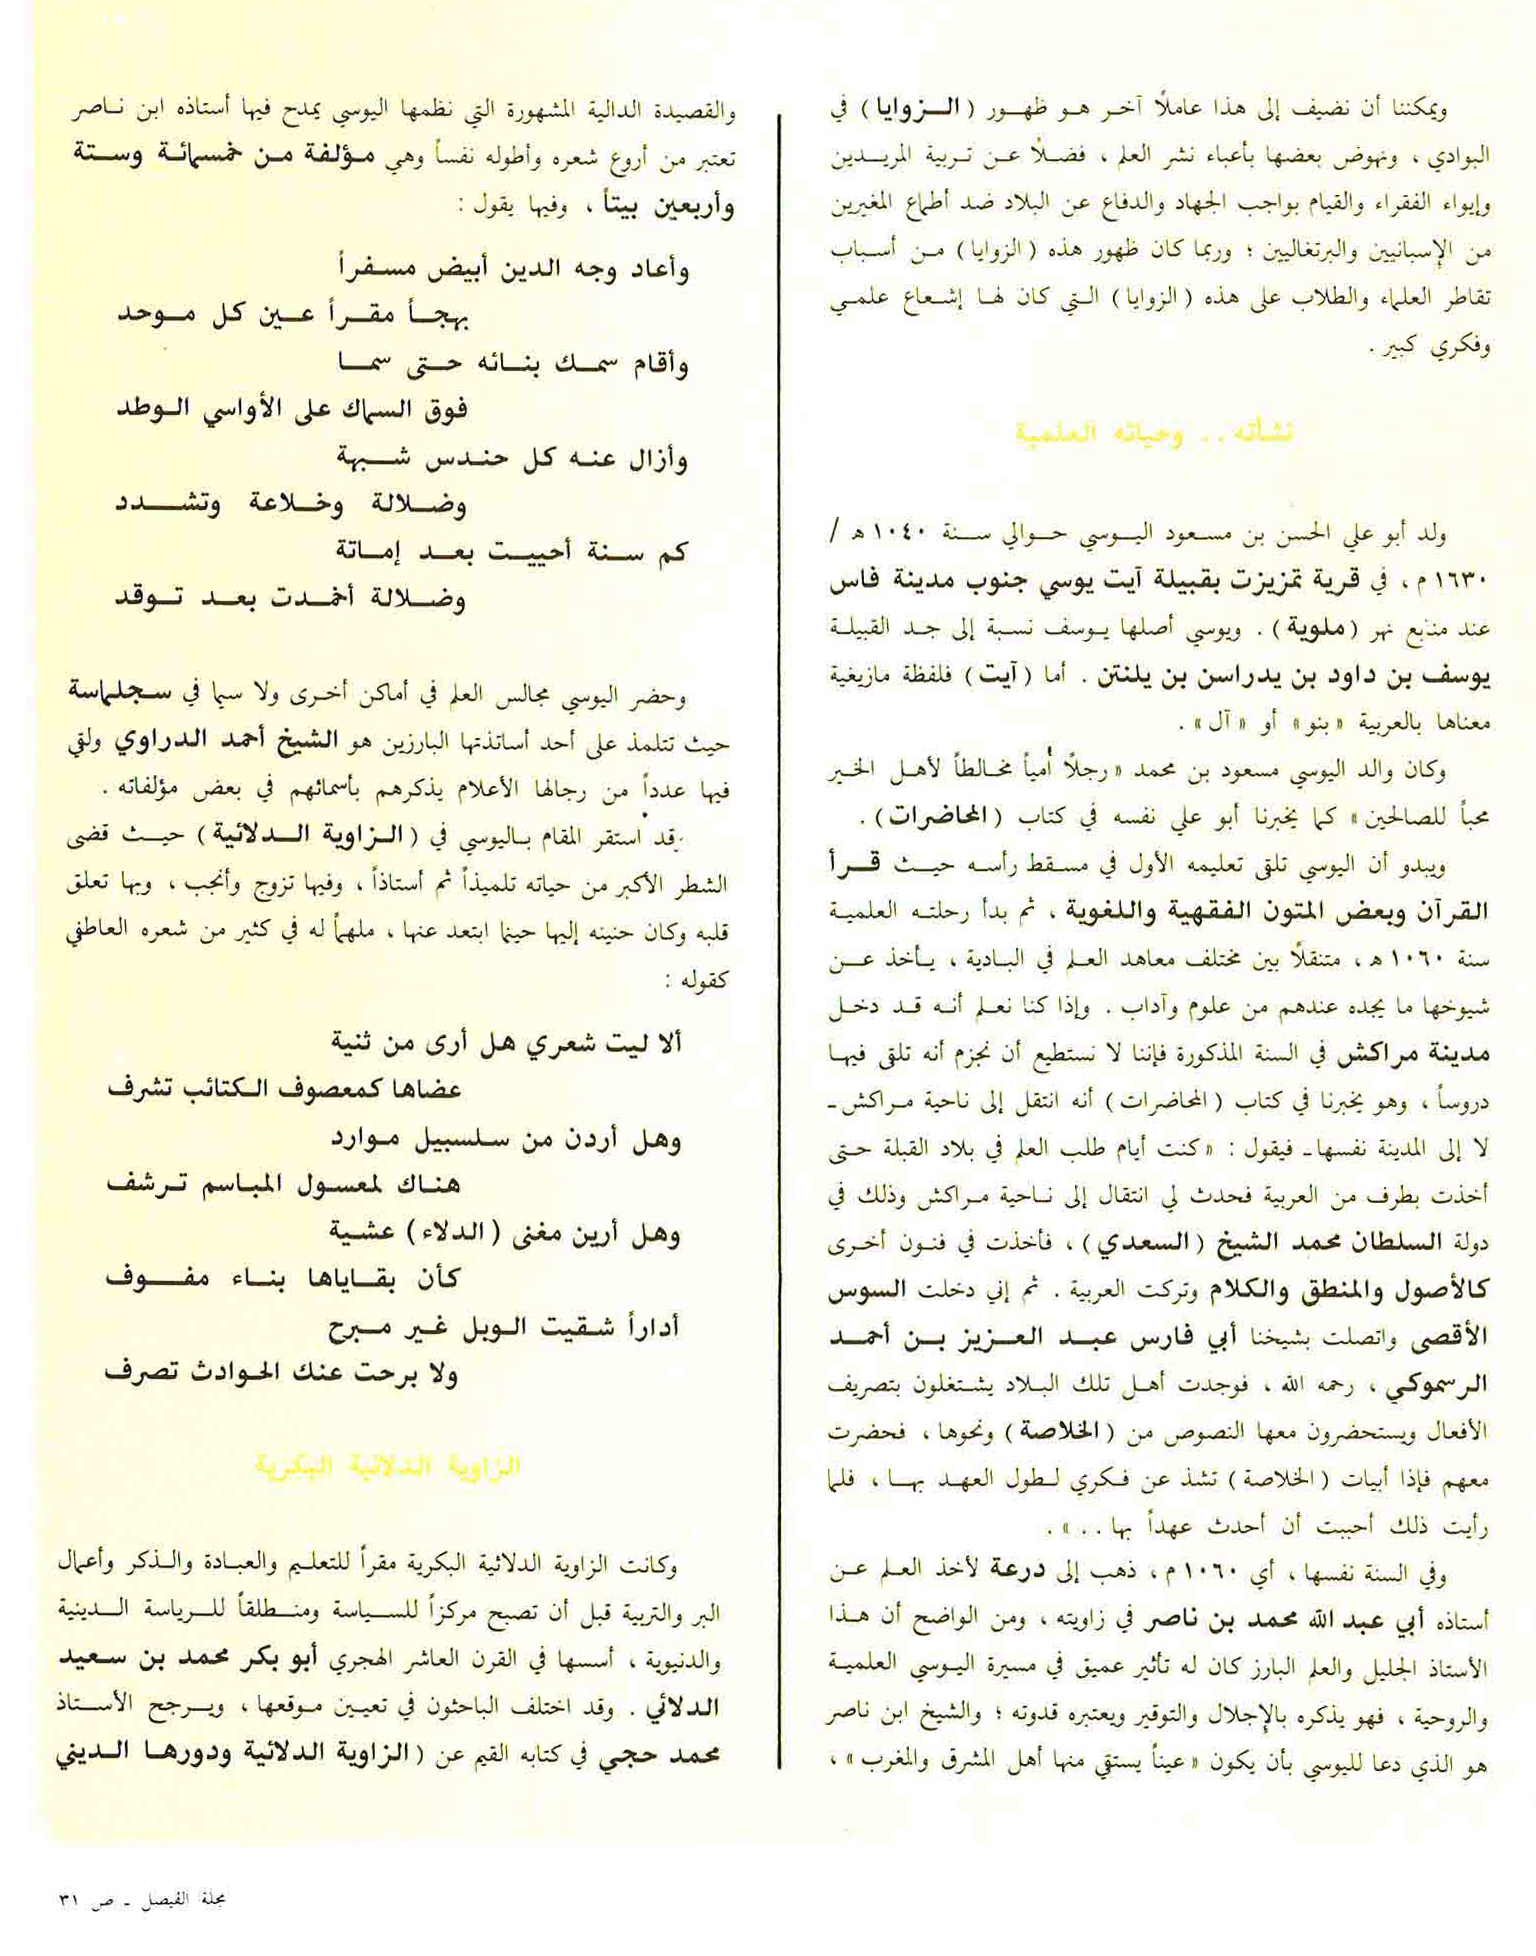 ويمكننا أن نضيف إلى هذا عاملًا آخر هو ظهور (الزوايا) في
البوادي ، ونهوض بعضها بأعباء نشر العلم ، فضلًا عن تربية المريدين
وإيواء الفقراء والقيام بواجب الجهاد والدفاع عن البلاد ضد أطماع المغيرين
من الإسبانيين والبرتغاليين ؛ وربما كان ظهور هذه (الزوايا) من أسباب
تقاطر العلماء والطلاب على هذه (الزوايا) التي كان لها إشعاع علمي
وفكري كبير .
نشأته .. وحياته العلمية
ولد أبو علي الحسن بن مسعود اليوسي حوالي سنة ١٠٤٠ هـ /
١٦٣٠ م ، في قرية تمزيزت بقبيلة آيت يوسي جنوب مدينة فاس
عند منابع نهر (ملوية) . ويوسي أصلها يوسف نسبة إلى جد القبيلة
يوسف بن داود بن يدراسن بن يلنتن . أما (آيت) فلفظة مازيغية
معناها بالعربية «بنو» أو «آل» .
وكان والد اليوسي مسعود بن محمد «رجلًا أمياً مخالطاً لأهل الخير
محباً للصالحين» كما يخبرنا أبو علي نفسه في كتاب (المحاضرات) .
ويبدو أن اليوسي تلقى تعليمه الأول في مسقط رأسه حيث قرأ
القرآن وبعض المتون الفقهية واللغوية ، ثم بدأ رحلته العلمية
سنة ١٠٦٠ هـ ، متنقلًا بين مختلف معاهد العلم في البادية ، يأخذ عن
شيوخها ما يجده عندهم من علوم وآداب . وإذا كنا نعلم أنه قد دخل
مدينة مراكش في السنة المذكورة فإننا لا نستطيع أن نجزم أنه تلقى فيها
دروساً ، وهو يخبرنا في كتاب (المحاضرات) أنه انتقل إلى ناحية مراكش ـ
لا إلى المدينة نفسها ـ فيقول : «كنت أيام طلب العلم في بلاد القبلة حتى
أخذت بطرف من العربية فحدث لي انتقال إلى ناحية مراكش وذلك في
دولة السلطان محمد الشيخ (السعدي) ، فأخذت في فنون أخرى
كالأصول والمنطق والكلام وتركت العربية . ثم إني دخلت السوس
الأقصى واتصلت بشيخنا أبي فارس عبد العزيز بن أحمد
الرسموكي ، رحمه الله ، فوجدت أهل تلك البلاد يشتغلون بتصريف
الأفعال ويستحضرون معها النصوص من (الخلاصة) ونحوها ، فحضرت
معهم فإذا أبيات (الخلاصة) تشذ عن فكري لطول العهد بها ، فلما
رأيت ذلك أحببت أن أحدث عهداً بها ..» .
وفي السنة نفسها ، أي ١٠٦٠ م ، ذهب إلى درعة لأخذ العلم عن
أستاذه أبي عبد الله محمد بن ناصر في زاويته ، ومن الواضح أن هذا
الأستاذ الجليل والعلم البارز كان له تأثير عميق في مسيرة اليوسي العلمية
والروحية ، فهو يذكره بالإجلال والتوقير ويعتبره قدوته ؛ والشيخ ابن ناصر
هو الذي دعا لليوسي بأن يكون «عيناً يستقي منها أهل المشرق والمغرب» ،
والقصيدة الدالية المشهورة التي نظمها اليوسي يمدح فيها أستاذه ابن ناصر
تعتبر من أروع شعره وأطوله نفساً وهي مؤلفة من خمسمائة وستة
وأربعين بيتاً ، وفيها يقول :
وأعاد وجه الدين أبيض مسفراً
بهجاً مقراً عين كل موحد
وأقام سمك بنائه حتى سما
فوق السماك على الأواسي الوطد
وأزال عنه كل حندس شبهة
وضلالة وخلاعة وتشدد
كم سنة أحييت بعد إماتة
وضلالة أخمدت بعد توقد
وحضر اليوسي مجالس العلم في أماكن أخرى ولا سيما في سجلماسة
حيث تتلمذ على أحد أساتذتها البارزين هو الشيخ أحمد الدراوي ولقي
فيها عدداً من رجالها الأعلام يذكرهم بأسمائهم في بعض مؤلفاته .
وقد استقر المقام باليوسي في (الزاوية الدلائية) حيث قضى
الشطر الأكبر من حياته تلميذاً ثم أستاذاً ، وفيها تزوج وأنجب ، وبها تعلق
قلبه وكان حنينه إليها حينما ابتعد عنها ، ملهماً له في كثير من شعره العاطفي
كقوله :
ألا ليت شعري هل أرى من ثنية
عضاها كمعصوف الكتائب تشرف
وهل أردن من سلسبيل موارد
هناك لمعسول المباسم ترشف
وهل أرين مغنى (الدلاء) عشية
كأن بقاياها بناء مفوف
أداراً شقيت الوبل غير مبرح
ولا برحت عنك الحوادث تصرف
الزاوية الدلائية البكرية
وكانت الزاوية الدلائية البكرية مقراً للتعليم والعبادة والذكر وأعمال
البر والتربية قبل أن تصبح مركزاً للسياسة ومنطلقاً للرياسة الدينية
والدنيوية ، أسسها في القرن العاشر الهجري أبو بكر محمد بن سعيد
الدلائي . وقد اختلف الباحثون في تعيين موقعها ، ويرجح الأستاذ
محمد حجي في كتابه القيم عن (الزاوية الدلائية ودورها الديني
مجلة الفيصل ـ ص ٣١